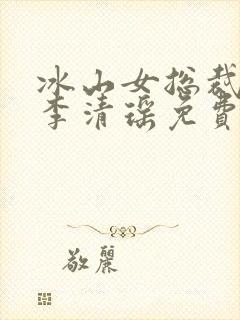 冰山女总裁
李清瑶免费
敬丽